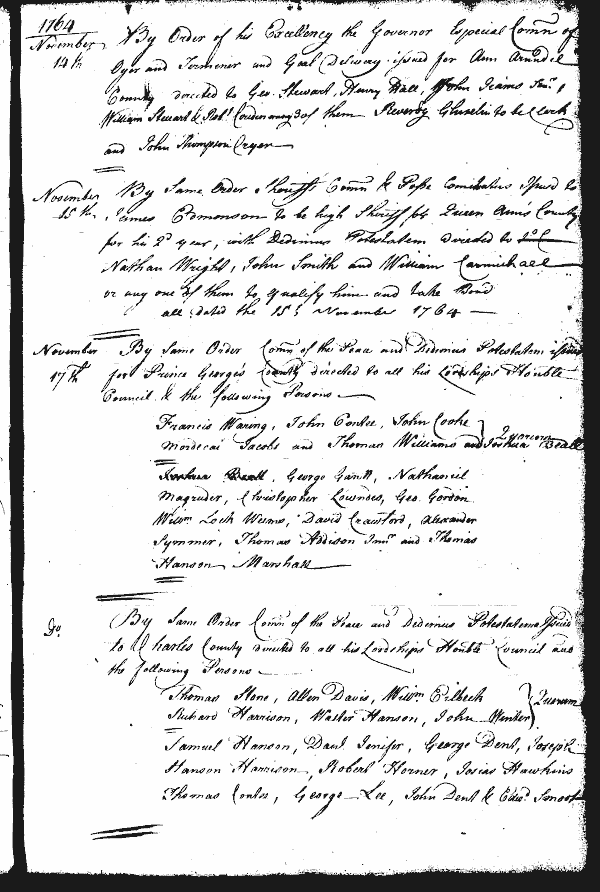 1764
November 14th
By Order of his Excellency the Governor Especial Comn of
Oyer and Terminer and Goal Delivery issued for Ann Arundel
County directed to Geo. Stewart, Henry Hall, John Ijams Senr,
William Steuart & Robt Couden any 3 of them Reverdy Ghiselin to be Clerk
and John Thompson Cryer
November 15th
By Same Order Sheriffs Comn & Posse Comitatus issued to
James Edmonson to be high Sheriff of Queen Ann's County
for his 2d year, with Dedimus Potestatem directed to
Nathan Wright, John Smith and William Carmichaell
or any one of them to qualify him and take Bond
all dated the 15th November 1764
November 17th
By Same Order Comn of the Peace and Dedimus Potestatem issued
for Prince George's County directed to all his Lordships Honble
Council & the following Persons
Francis Waring, John Contee, John Cooke } Quorum
Mordecai Jacobs and Thomas Williams and Joshua Beall
Joshua Beall, George Gantt, Nathaniel
Magruder, Christopher Lowndes, Geo. Gordon
Willm Lock Weems, David Crawford, Alexander
Symmer, Thomas Addison Junr and Thomas
Hanson Marshall
Do.
By Same Order Comn of the Peace and Dedimus Potestatem Issued
to Charles County directed to all his Lordships Honble Council and
the following Persons
Thomas Stone, Allen Davis, Willm Eilbeck } Quorum
Richard Harrison, Walter Hanson, John Winter
Samuel Hanson, Danl. Jenifer, George Dent, Joseph
Hanson Harrison, Robert Horner, Josias Hawkins
Thomas Contee, George Lee, John Dent & Edwd Smoot